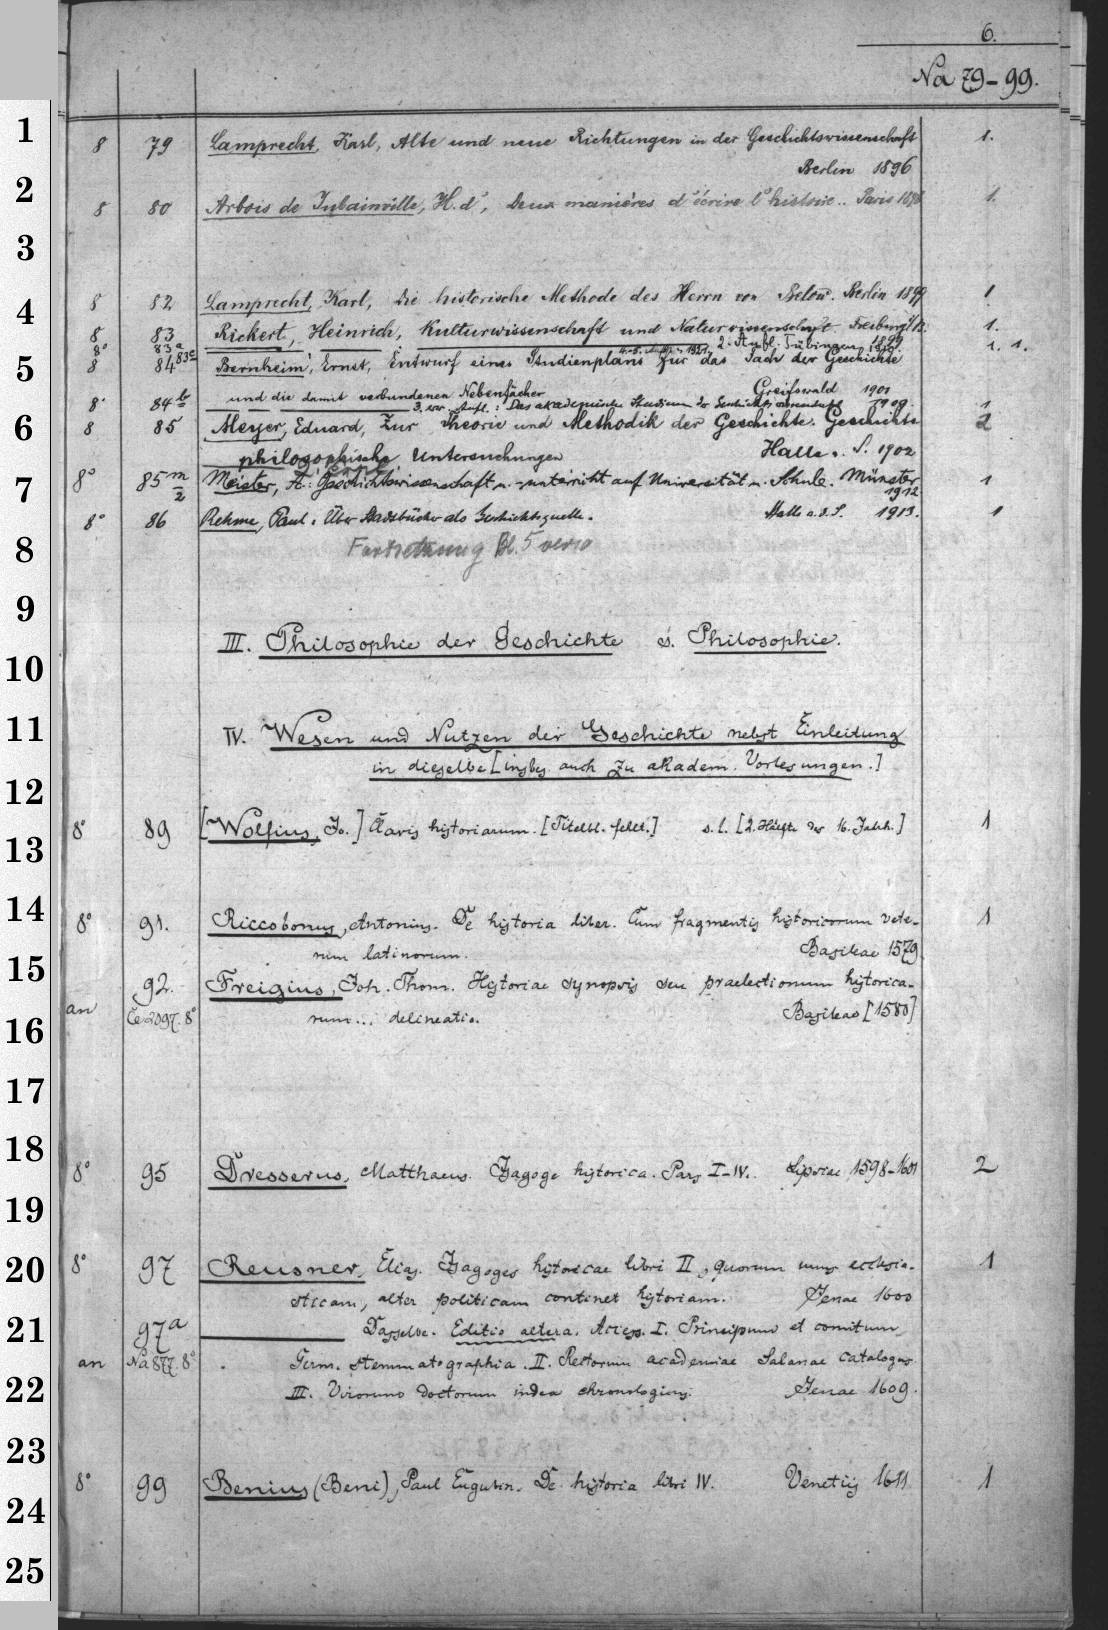 6.
Na 79-99.
1
2
3
4
5
6
7
8
9
10
11
12
13
14
15
16
17
18
19
20
21
22
23
24
25
8 79 Lamprecht, Karl, Alte und neue Richtungen in der Geschichtswissenschaft 1.
Berlin 1896
8 80 Arbois de Jubainville, H. d', Deux manières d'écrire l'histoire.. Paris 1896 1.
8 82 Lamprecht, Karl, Die historische Methode des Herrn von Below. Berlin 1899 1.
8 83 Rickert, Heinrich, Kulturwissenschaft und Naturwissenschaft. Freiburg i/B. 1.
1899
8° 83a 2. Aufl. Tübingen 1910. 1. 1.
83c 4.-5. Aufl. 1921.
8 84 Bernheim, Ernst, Entwurf eines Studienplans für das Fach der Geschichte
und die damit verbundenen Nebenfächer Greifswald 1901
8° 84b 3. Aufl.: Das akademische Studium der Geschichtswissenschaft 1909. 1
8 85 Meyer, Eduard, Zur Theorie und Methodik der Geschichte. Geschichts- 2
philosophische Untersuchungen Halle a. S. 1902
8° 85m/2 Meister, A.: Geschichtswissenschaft u. -unterricht auf Universität u. Schule. Münster 1
1912
8° 86 Rehme, Paul: Über Stadtbücher als Geschichtsquelle. Halle a. d. S. 1913. 1
Fortsetzung Bl. 5 verso
III. Philosophie der Geschichte s. Philosophie.
IV. Wesen und Nutzen der Geschichte nebst Einleitung
in dieselbe [insbes. auch zu akadem. Vorlesungen.]
8° 89 [Wolfius, Jo.] Clavis historiarum. [Titelbl. fehlt.] s. l. [2. Hälfte des 16. Jahrh.] 1
8° 91. Riccobonus, Antonius. De historia liber. Cum fragmentis historicorum vete- 1
rum latinorum. Basileae 1579
92. Freigius, Joh. Thom. Historiae synopsis seu praelectionum historica-
an Ce 2097. 8° rum... delineatio. Basileae [1580]
8° 95 Dresserus, Matthaeus. Isagoge historica. Pars I-IV. Lipsiae 1598-1601 2
8° 97 Reusner, Elias. Isagoges historicae libri II, quorum unus ecclesia- 1
sticam, alter politicam continet historiam. Jenae 1600
97a Dasselbe. Editio altera. Access. I. Principum et comitum
an Na 877. 8° Germ. stemmatographia. II. Rectorum academiae Salanae catalogus
III. Virorum doctorum index chronologicus. Jenae 1609.
8° 99 Benius (Beni), Paul Eugubin. De historia libri IV. Venetiis 1611 1